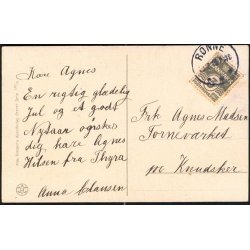 RØNNE
Kære Agnes
En rigtig glædelig
Jul og et godt
Nytaar ønskes
dig kære Agnes
Hilsen fra Thyra
Anna Clausen
Frk Agnes Madsen
Tornevarket
pr Knudsker